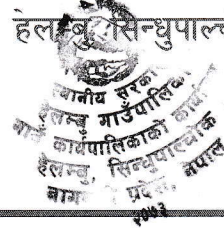 हेलम्बु, सिन्धुपाल्च
स्थानीय सरकार
हेलम्बु गाउँपालिका
गाउँ कार्यपालिकाको कार्या
हेलम्बु, सिन्धुपाल्चोक
प्रदेश, नेपाल
२०७३